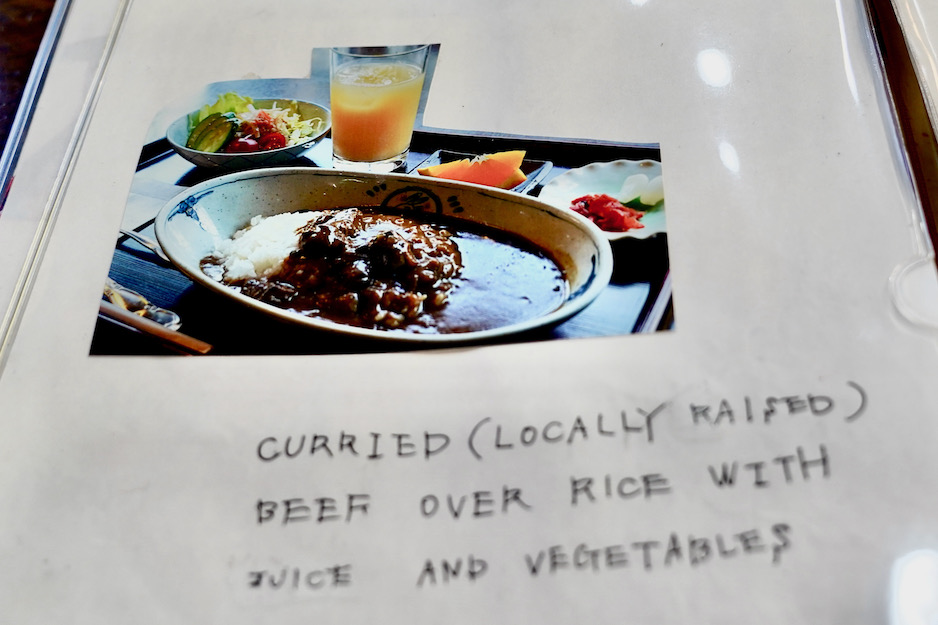 CURRIED (LOCALLY RAISED)
BEEF OVER RICE WITH
JUICE AND VEGETABLES